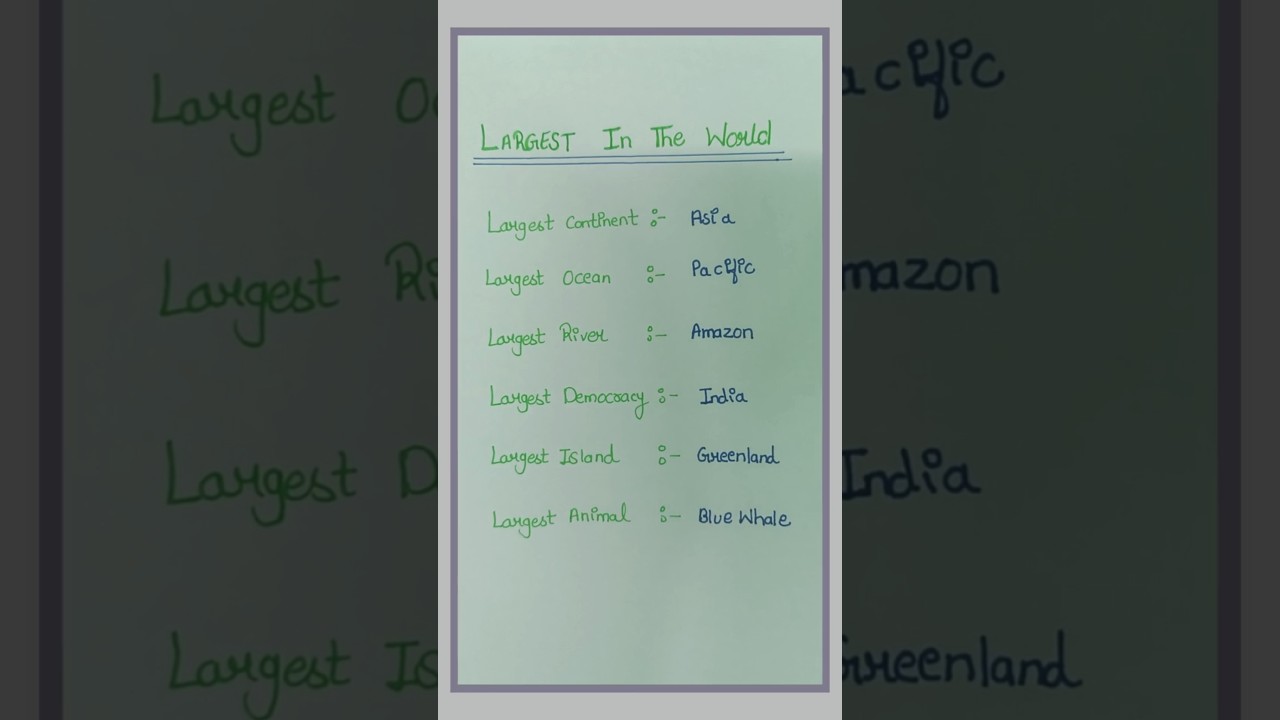 LARGEST In The World
Largest Continent :- Asia
Largest Ocean :- Pacific
Largest River :- Amazon
Largest Democracy :- India
Largest Island :- Greenland
Largest Animal :- Blue Whale